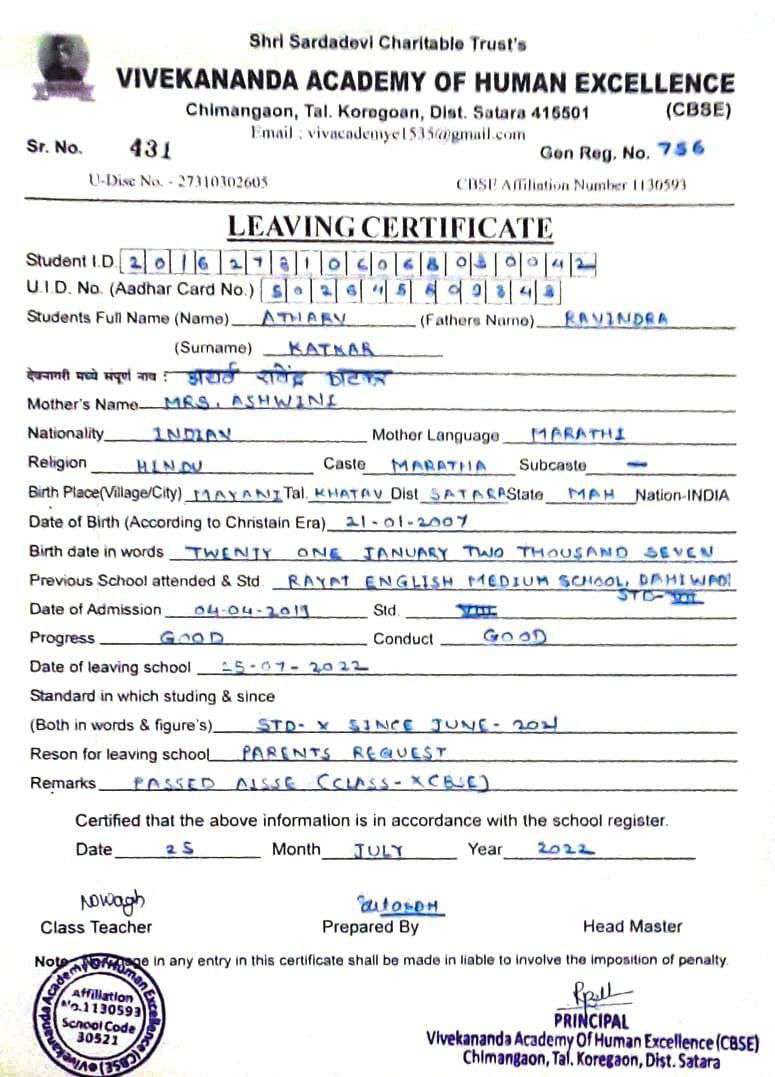 Shri Sardadevi Charitable Trust's
VIVEKANANDA ACADEMY OF HUMAN EXCELLENCE
Chimangaon, Tal. Koregoan, Dist. Satara 415501 (CBSE)
Email : vivacademye1535@gmail.com
Sr. No. 431 Gen Reg. No. 756
U-Disc No. - 27310302605 CBSE Affiliation Number 1130593
LEAVING CERTIFICATE
Student I.D.
U.I.D. No. (Aadhar Card No.)
Students Full Name (Name) ATHARV (Fathers Name) RAVINDRA
(Surname) KATKAR
देवनागरी मध्ये संपूर्ण नाव : अथर्व रविंद्र काटकर
Mother's Name MRS. ASHWINI
Nationality INDIAN Mother Language MARATHI
Religion HINDU Caste MARATHA Subcaste —
Birth Place(Village/City) MAYANI Tal. KHATAV Dist SATARA State MAH Nation-INDIA
Date of Birth (According to Christain Era) 21-01-2007
Birth date in words TWENTY ONE JANUARY TWO THOUSAND SEVEN
Previous School attended & Std. RAYAT ENGLISH MEDIUM SCHOOL, DAHIWADI
STD- VII
Date of Admission 04-04-2019 Std. VIII
Progress GOOD Conduct GOOD
Date of leaving school 25-07-2022
Standard in which studing & since
(Both in words & figure's) STD- X SINCE JUNE- 2021
Reson for leaving school PARENTS REQUEST
Remarks PASSED AISSE (CLASS- X CBSE)
Certified that the above information is in accordance with the school register.
Date 25 Month JULY Year 2022
Class Teacher Prepared By Head Master
Note in any entry in this certificate shall be made in liable to involve the imposition of penalty.
Vivekananda Academy Of Human Excellence (CBSE)
Affiliation
No.1130593
School Code
30521
PRINCIPAL
Vivekananda Academy Of Human Excellence (CBSE)
Chimangaon, Tal. Koregaon, Dist. Satara